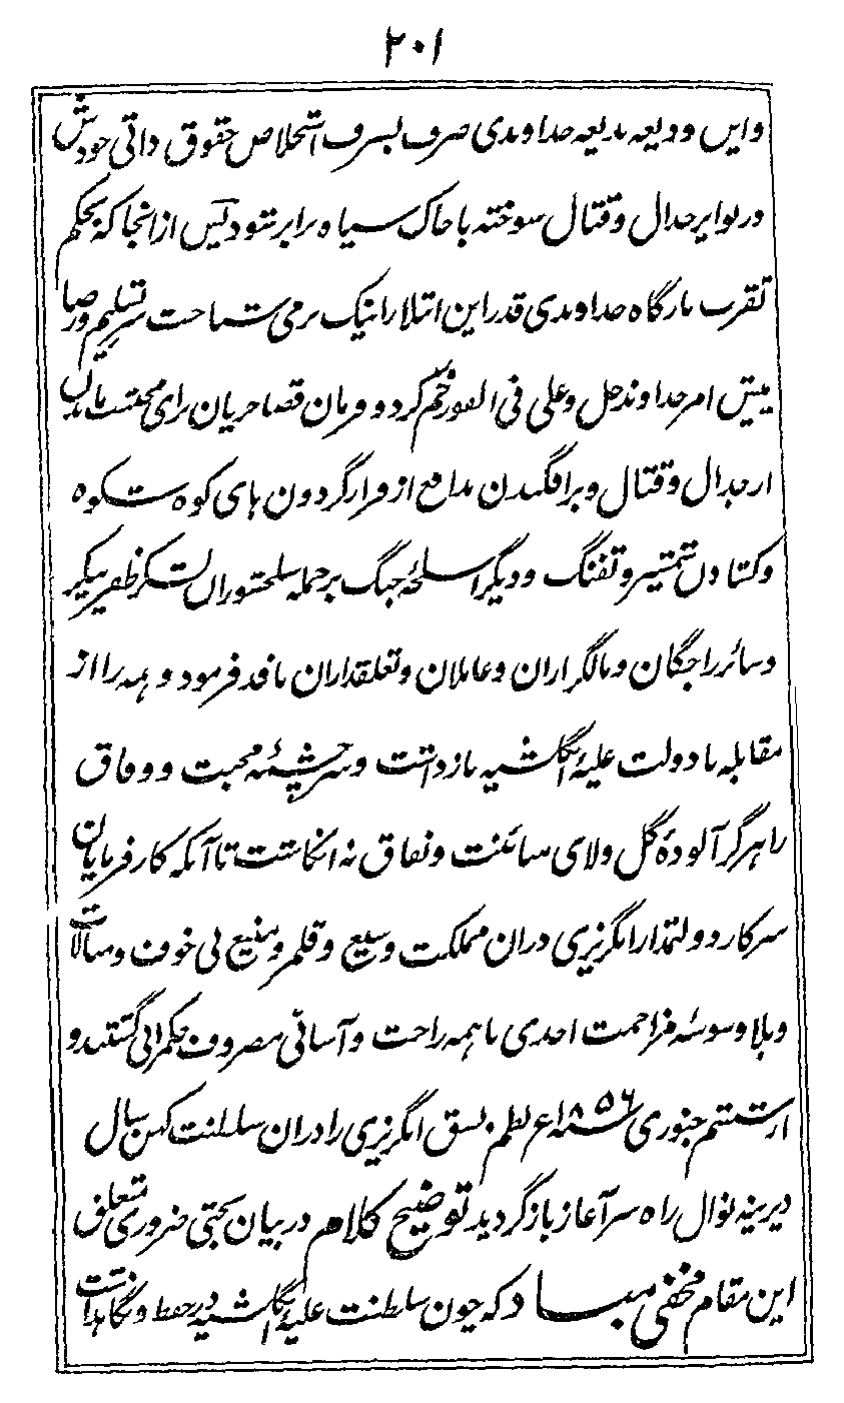 ۲۰۱
واین ودیعه بدیعه خداوندی صرف بسرف استخلاص حقوق ذاتی خودش
درنوایر جدال وقتال سوخته باخاک سیاه برابر شود پس ازانجا که بحکم
تقرب بارگاه خداوندی قدر این ابتلا را نیک برمی شناخت سر تسلیم ورضا
پیش امر خداوند جل وعلی فی الفور خم کرد و فرمان قضا جریان رای محتشت
از جدال وقتال و برافگندن مدافع از فراز گردون های کوه شکوه
وکشادن شمشیر و تفنگ ودیگر اسلحهٔ جنگ برجمله سلحشوران لشکر ظفر پیکر
وسائر راجگان ومالگزاران وعاملان وتعلقداران نافذ فرمود و همه را از
مقابله با دولت علیهٔ انگلشیه بازداشت وسرچشمهٔ محبت ووفاق
را هرگز آلودهٔ گل ولای مبائنت ونفاق نه انگاشت تا آنکه کارفرمایان
سرکار دولتمدار انگریزی دران مملکت وسیع وقلمرو منیع بی خوف ومبالات
وبلا وسوسهٔ مزاحمت احدی باهمه راحت وآسانی مصروف حکمرانی گشتند و
از ششم جنوری ۱۸۵۶ء نظم ونسق انگریزی را دران سلطنت کهن سال
دیرینه نوال راه سرآغاز بازگردید توضیح کلام در بیان بحثی ضروری متعلق
این مقام مخفی مباد که چون سلطنت علیهٔ انگلشیه درحفظ ونگاهداشت